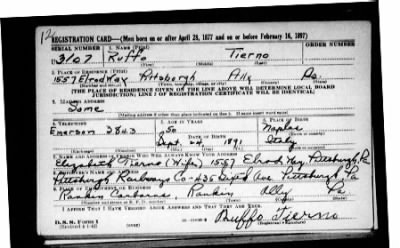 12
REGISTRATION CARD—(Men born on or after April 28, 1877 and on or before February 16, 1897)
SERIAL NUMBER 1. NAME (Print)
U 3107 Ruffo Tierno
(First) (Middle) (Last)
2. PLACE OF RESIDENCE (Print)
1557 Elrod Way Pittsburgh Alleg Pa.
[THE PLACE OF RESIDENCE GIVEN ON THE LINE ABOVE WILL DETERMINE LOCAL BOARD
JURISDICTION; LINE 2 OF REGISTRATION CERTIFICATE WILL BE IDENTICAL]
3. MAILING ADDRESS
Same
[Mailing address if other than place indicated on line 2. If same insert word same]
4. TELEPHONE 5. AGE IN YEARS 6. PLACE OF BIRTH
Emerson 2843 50 Naples
DATE OF BIRTH
Sept. 24 1891 Italy
7. NAME AND ADDRESS OF PERSON WHO WILL ALWAYS KNOW YOUR ADDRESS
Elizabeth Tierno (Wife) 1557 Elrod Way Pittsburgh, Pa
8. EMPLOYER'S NAME AND ADDRESS
Pittsburgh Railways Co - 435 Ave Pittsburgh Pa
9. PLACE OF EMPLOYMENT OR BUSINESS
Rankin Carbarns, Rankin Alleg Pa
I AFFIRM THAT I HAVE VERIFIED ABOVE ANSWERS AND THAT THEY ARE TRUE.
D. S. S. Form 1
Ruffo Tierno